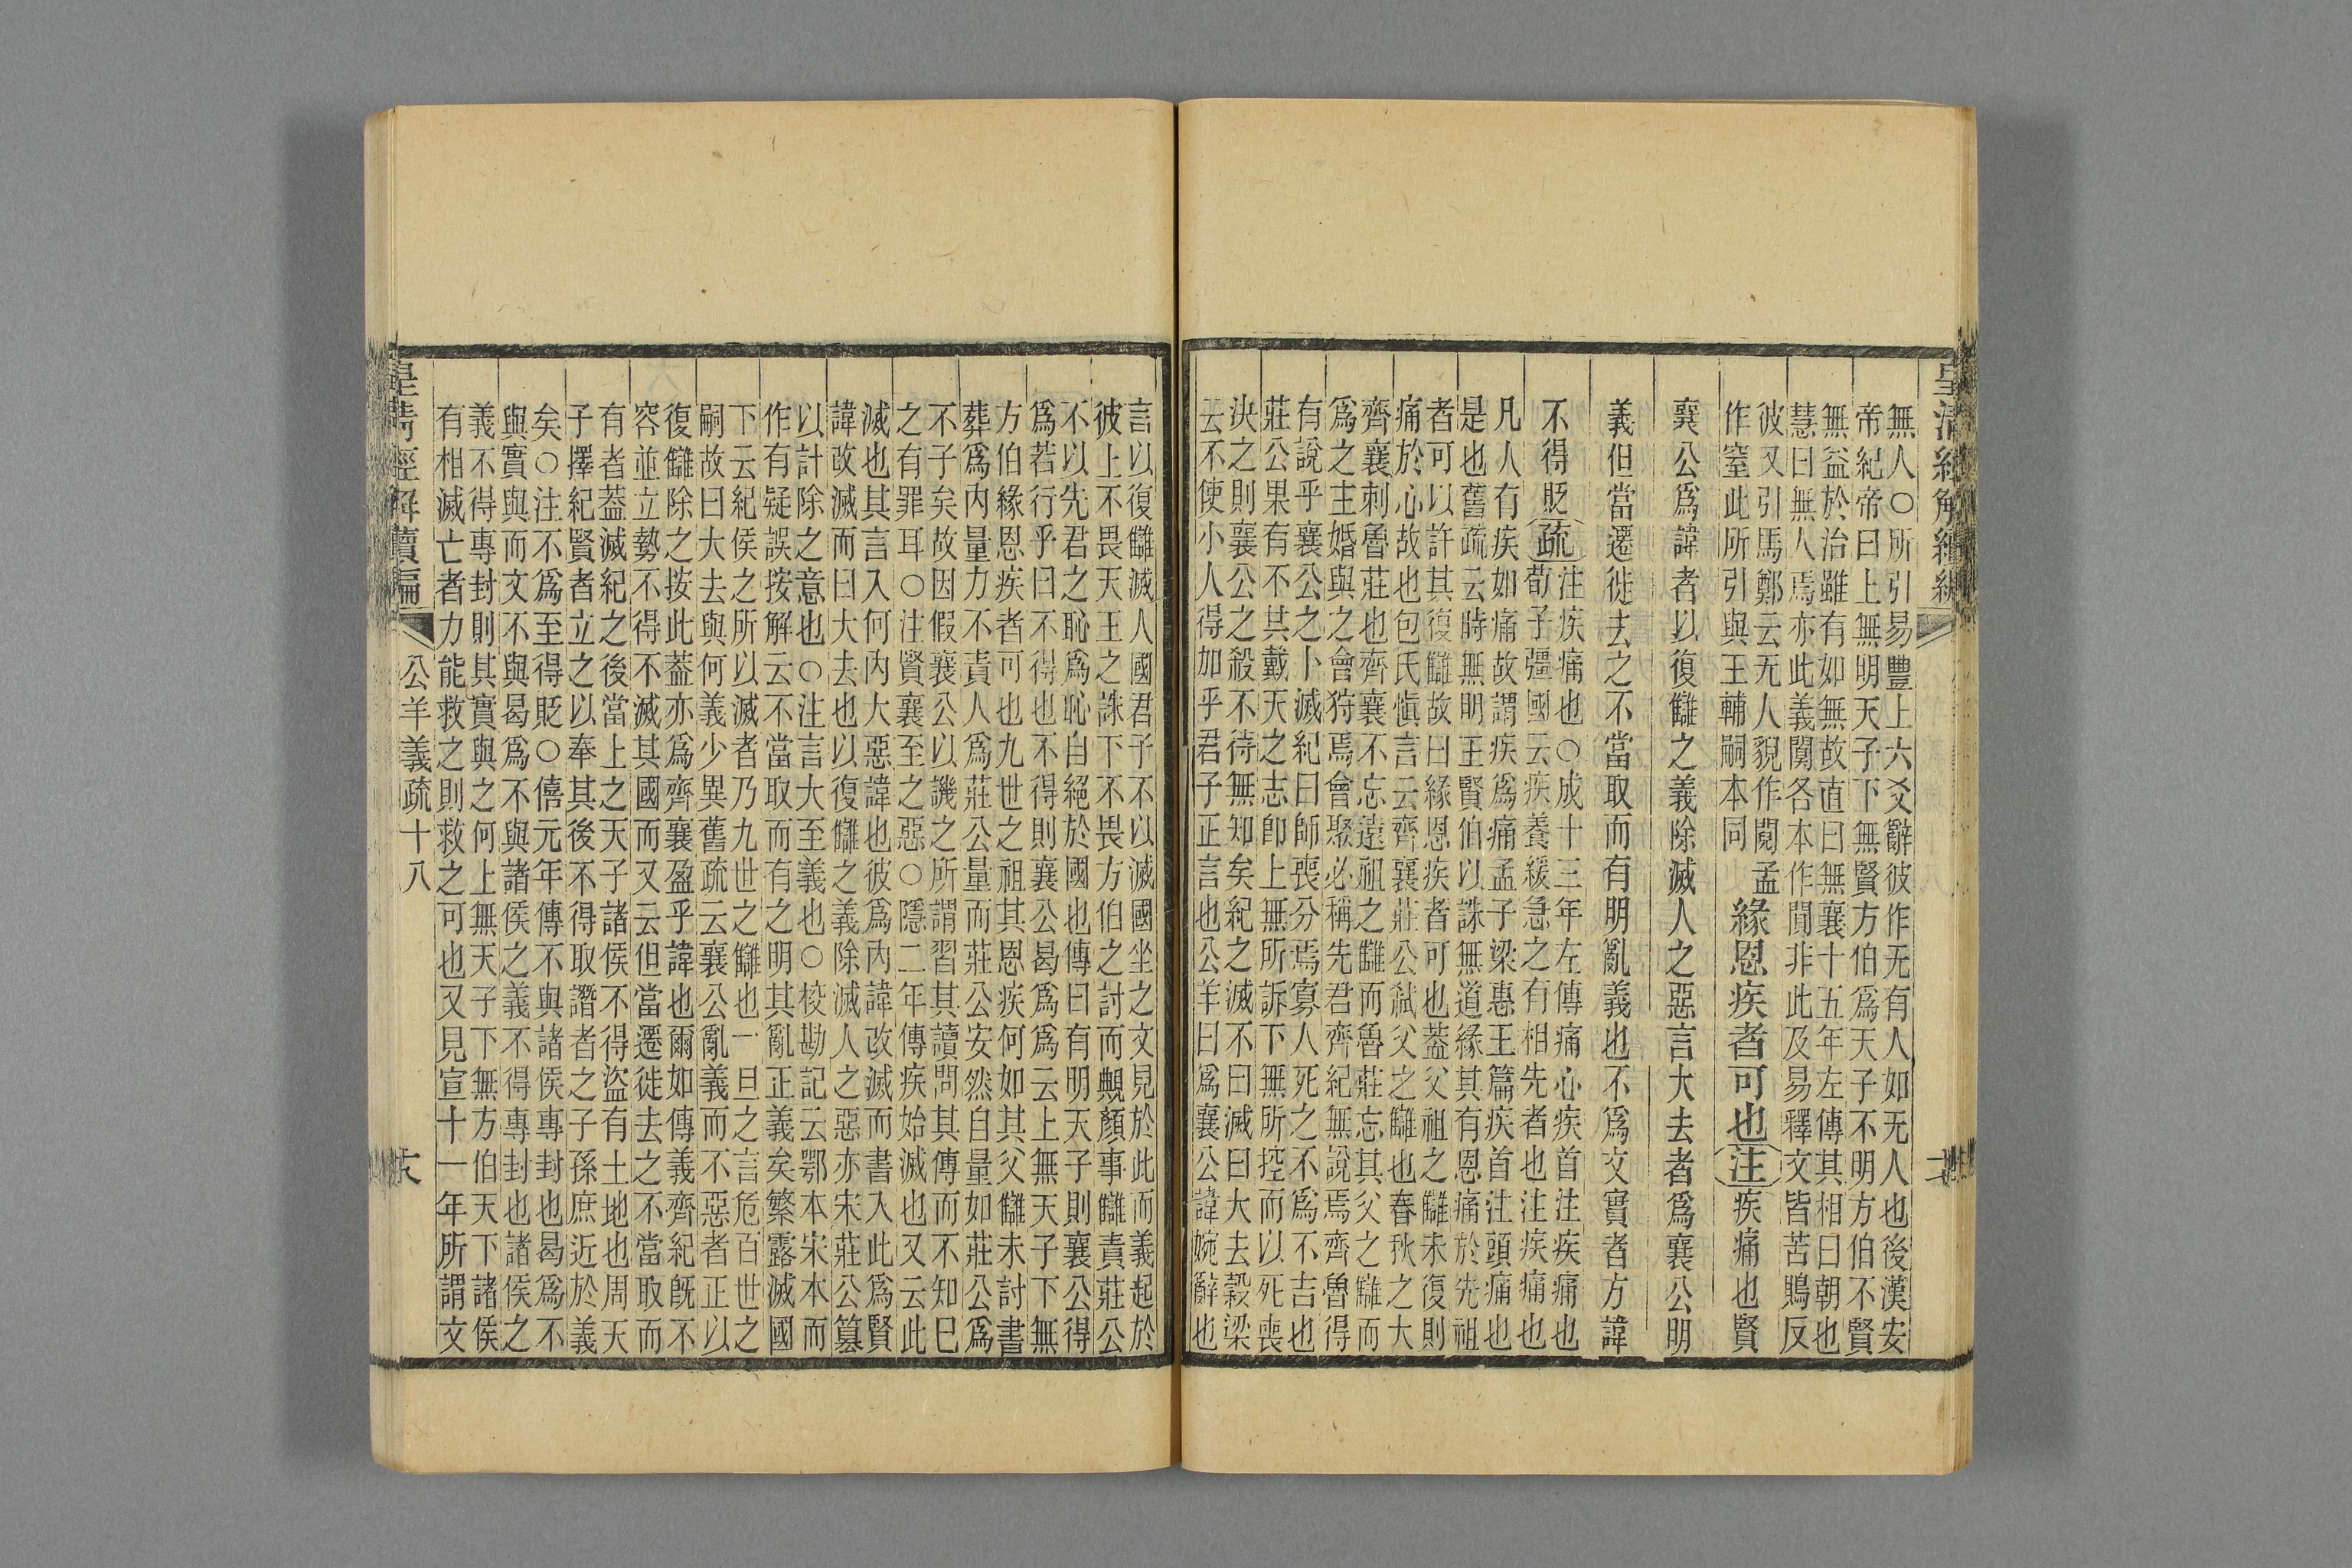 皇清經解續編
無人〇所引易豐上六爻辭彼作无有人如无人也後漢安
帝紀帝曰上無明天子下無賢方伯爲天子不明方伯不賢
無益於治雖有如無故直曰無襄十五年左傳其相曰朝也
慧曰無人焉亦此義闃各本作閴非此及易釋文皆苦鵙反
彼又引馬鄭云无人貌作闃孟
作窒此所引與王輔嗣本同
緣恩疾者可也注疾痛也賢
襄公爲諱者以復讎之義除滅人之惡言大去者爲襄公明
義但當遷徙去之不當取而有明亂義也不爲文實者方諱
不得貶疏
注疾痛也〇成十三年左傳痛心疾首注疾痛也
荀子彊國云疾養緩急之有相先者也注疾痛也
凡人有疾如痛故謂疾爲痛孟子梁惠王篇疾首注頭痛也
是也舊疏云時無明王賢伯以誅無道緣其有恩痛於先祖
者可以許其復讎故曰緣恩疾者可也蓋父祖之讎未復則
痛於心故也包氏愼言云齊襄莊公弒父之讎也春秋之大
齊襄刺魯莊也齊襄不忘遠祖之讎而魯莊忘其父之讎而
爲之主婚與之會狩焉會聚必稱先君齊紀無說焉齊魯得
有說乎襄公之卜滅紀曰師喪分焉寡人死之不爲不吉也
莊公果有不共戴天之志卽上無所訴下無所控而以死喪
決之則襄公之殺不待無知矣紀之滅不曰滅曰大去穀梁
云不使小人得加乎君子正言也公羊曰爲襄公諱婉辭也
言以復讎滅人國君子不以滅國坐之文見於此而義起於
彼上不畏天王之誅下不畏方伯之討而覥顏事讎責莊公
不以先君之恥爲恥自絕於國也傳曰有明天子則襄公得
爲若行乎曰不得也不得則襄公曷爲爲云上無天子下無
方伯緣恩疾者可也九世之祖其恩疾何如其父讎未討書
葬爲內量力不責人爲莊公量而莊公安然自量如莊公爲
不子矣故因假襄公以譏之所謂習其讀問其傳而不知已
之有罪耳〇注賢襄至之惡〇隱二年傳疾始滅也又云此
滅也其言入何內大惡諱也彼爲內諱改滅而書入此爲賢
諱改滅而曰大去也以復讎之義除滅人之惡亦宋莊公篡
以計除之意也〇注言大至義也〇校勘記云鄂本宋本而
作有疑誤按解云不當取而有之明其亂正義矣繁露滅國
下云紀侯之所以滅者乃九世之讎也一旦之言危百世之
嗣故曰大去與何義少異舊疏云襄公亂義而不惡者正以
復讎除之按此蓋亦爲齊襄盈乎諱也爾如傳義齊紀旣不
容並立勢不得不滅其國而又云但當遷徙去之不當取而
有者蓋滅紀之後當上之天子諸侯不得盜有土地也周天
子擇紀賢者立之以奉其後不得取譖者之子孫庶近於義
矣〇注不爲至得貶〇僖元年傳不與諸侯專封也曷爲不
與實與而文不與曷爲不與諸侯之義不得專封也諸侯之
義不得專封則其實與之何上無天子下無方伯天下諸侯
有相滅亡者力能救之則救之可也又見宣十一年所謂文
皇清經解續編
公羊義疏十八